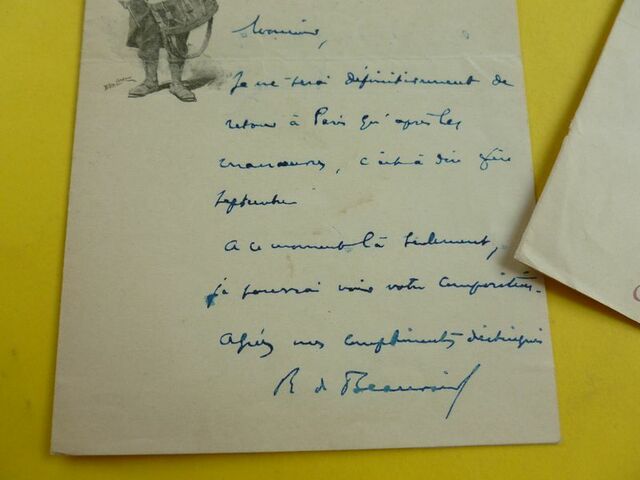 Monsieur,
Je ne serai définitivement de
retour à Paris qu'après les
manœuvres, c'est à dire fin
septembre
A ce moment là seulement,
je pourrai voir votre composition.
Agréez mes compliments distingués
R de Beauvoir